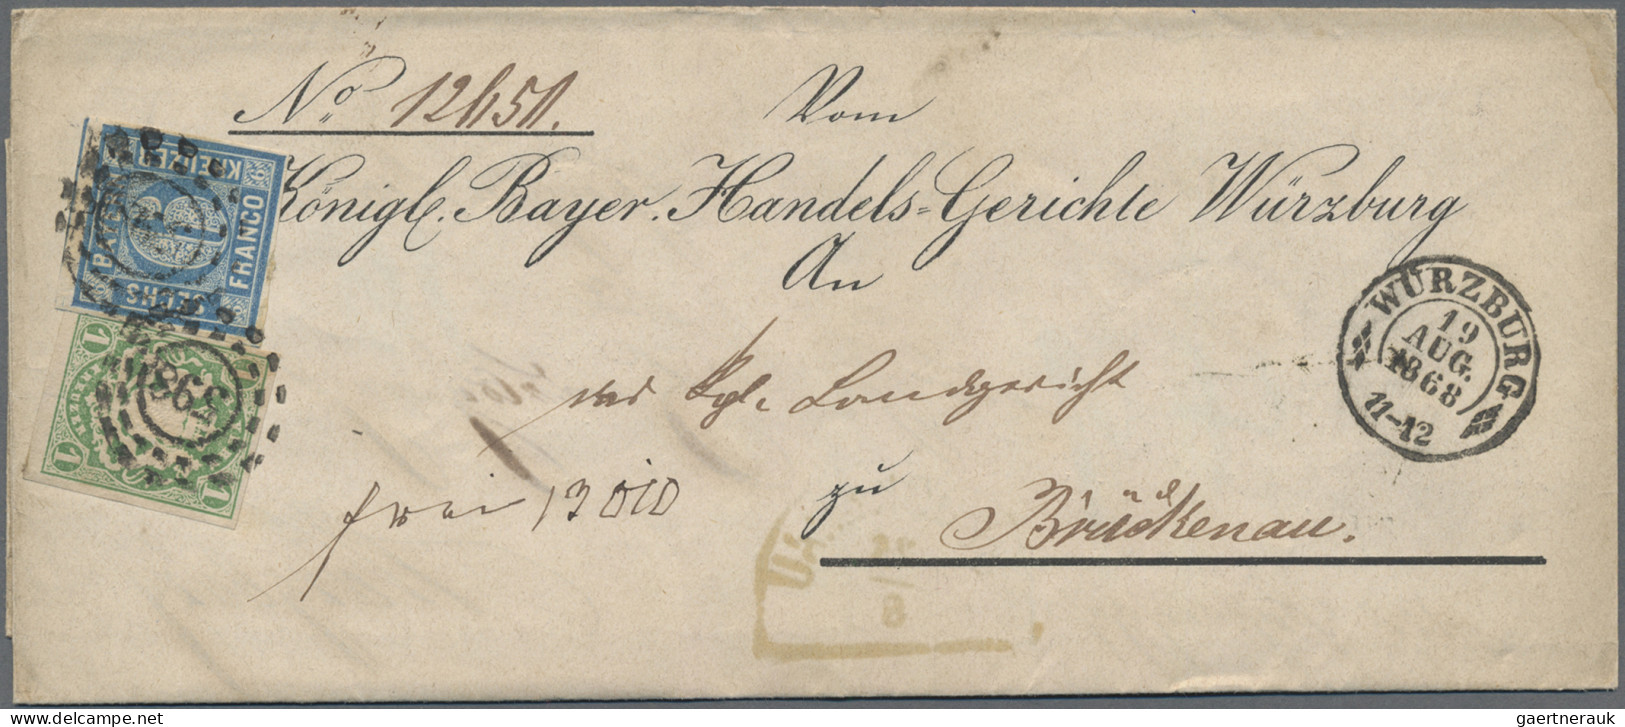 No. 12451.
Vom
Königl. Bayer. Handels=Gerichte Würzburg
An
das Kgl. Landgericht
zu
Brückenau.
frei
KREUZER
FRANCO
SECHS
6
1
1
1
598
WÜRZBURG
19
AUG.
1868
11-12
gaertnerauk